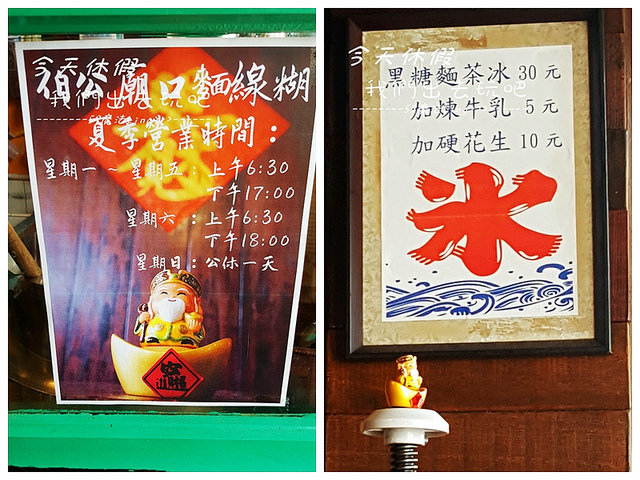 今天休假
我們出去玩吧
頎公廟口麵線糊
夏季營業時間：
星期一～星期五：上午6:30
下午17:00
星期六：上午6:30
下午18:00
星期日：公休一天
今天休假
我們出去玩吧
黑糖麵茶冰30元
加煉牛乳 5元
加硬花生10元
冰